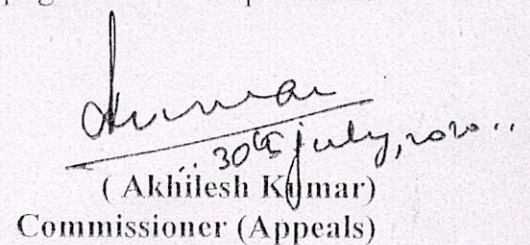 Kumar
30th July, 2020..
( Akhilesh Kumar)
Commissioner (Appeals)